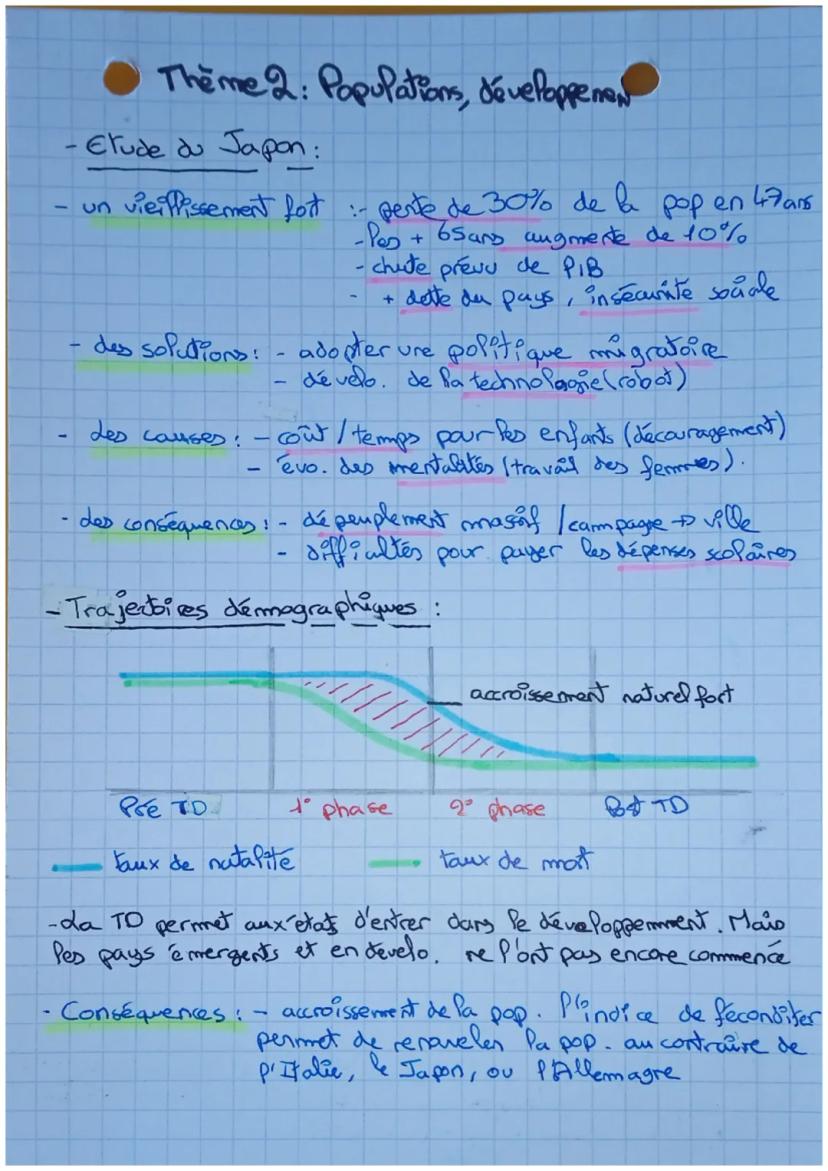 Thème 2 : Populations, développemen
- Etude du Japon :
- un vieillissement fort : - perte de 30% de la pop en 47 ans
- les + 65 ans augmente de 10%
- chute prévu de PIB
- + dette du pays, insécurité sociale
- des solutions : - adopter une politique migratoire
- dévelo. de la technologie (robot)
- des causes : - coût / temps pour les enfants (découragement)
- évo. des mentalités (travail des femmes).
- des conséquences : - dépeuplement massif / campagne → ville
- difficultés pour payer les dépenses scolaires
- Trajectoires démographiques :
accroissement naturel fort
Pré TD 1° phase 2° phase Post TD
taux de natalité taux de mort
- La TD permet aux états d'entrer dans le développemment. Mais
les pays émergents et en dévelo. ne l'ont pas encore commencé
- Conséquences : - accroissement de la pop. l'indice de féconditer
permet de renouveler la pop. au contraire de
l'Italie, le Japon, ou l'Allemagne